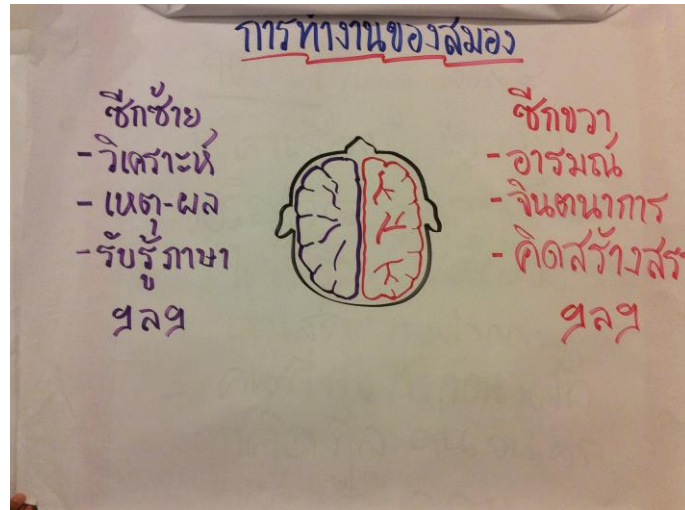 การทำงานของสมอง
ซีกซ้าย
- วิเคราะห์
- เหตุ-ผล
- รับรู้ภาษา
ฯลฯ
ซีกขวา
- อารมณ์
- จินตนาการ
- คิดสร้างสร
ฯลฯ